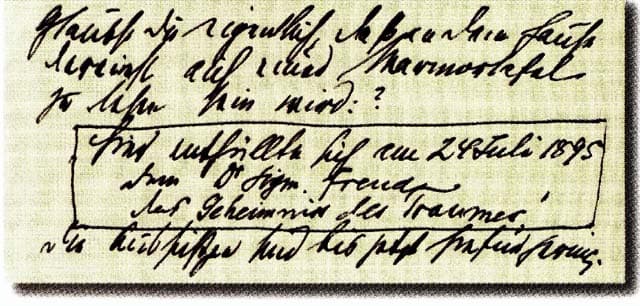 Glaubst Du eigentlich daß an dem Hause
dereinst auf einer Marmortafel
zu lesen sein wird: ?
Hier enthüllte sich am 24 Juli 1895
dem Dr Sigm. Freud
das Geheimnis des Traumes
Die Aussichten sind bis jetzt hiefür gering.